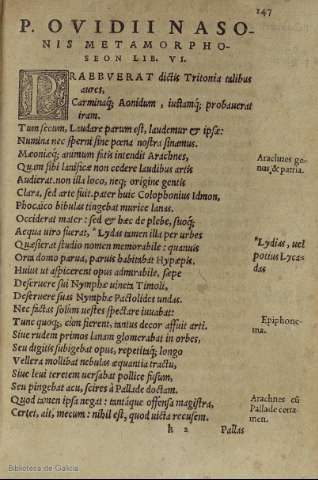 147
P. OVIDII NASO-
NIS METAMORPHO-
SEON LIB. VI.
PRAEBVERAT dictis Tritonia talibus
aures,
Carminaq; Aonidum, iustamq; probauerat
iram.
Tum secum, Laudare parum est, laudemur & ipsæ:
Numina nec sperni sine pœna nostra sinamus.
Mæoniæq; animum fatis intendit Arachnes,
Arachnes ge-
nus & patria.
Quam sibi lanificæ non cedere laudibus artis
Audierat. non illa loco, neq; origine gentis
Clara, sed arte fuit. pater huic Colophonius Idmon,
Phocaico bibulas tingebat murice lanas.
Occiderat mater: sed & hæc de plebe, suoq;
Aequa uiro fuerat, *Lydas tamen illa per urbes
*Lydias, uel
potius Lyca-
das
Quæsierat studio nomen memorabile: quamuis
Orta domo parua, paruis habitabat Hypæpis.
Huius ut aspicerent opus admirabile, sæpe
Deseruere sui Nymphæ uineta Timoli,
Deseruere suas Nymphæ Pactolides undas.
Nec factas solum uestes spectare iuuabat:
Tunc quoq;, cùm fierent, tantus decor affuit arti.
Epiphone-
ma.
Siue rudem primos lanam glomerabat in orbes,
Seu digitis subigebat opus, repetitaq; longo
Vellera mollibat nebulas æquantia tractu,
Siue leui teretem uersabat pollice fusum,
Seu pingebat acu, scires à Pallade doctam.
Quod tamen ipsa negat: tantáque offensa magistra,
Arachnes cū
Pallade certa-
men.
Certet, ait, mecum: nihil est, quod uicta recusem.
h 2 Pallas
Biblioteca de Galicia